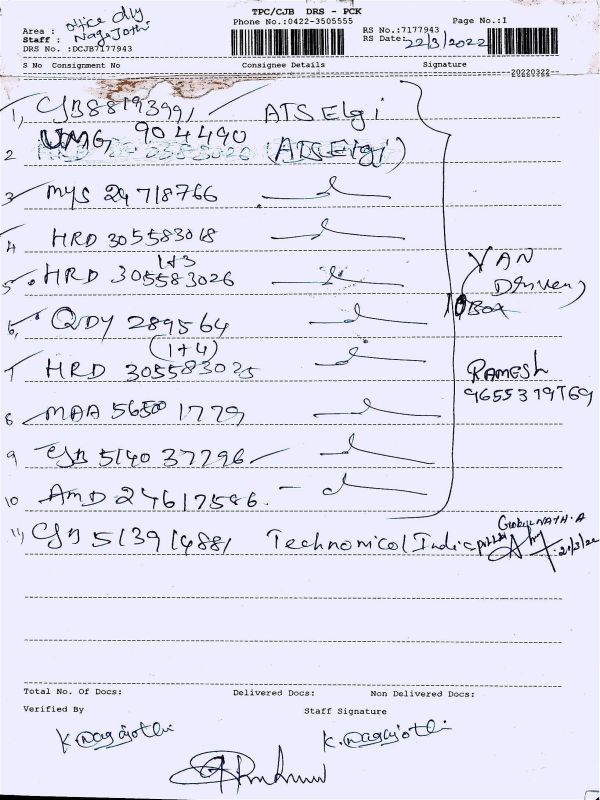 TPC/CJB DRS - PCK
Phone No.:0422-3505555
Page No.:1
Area : office dly
Staff : Nagajothi
DRS No. :DCJB7177943
RS No.:7177943
RS Date: 22/3/2022
S No Consignment No Consignee Details Signature
20220322
1, CJB88193991 ATS Elgi
UMG 904490
2 (ATS Elgi)
3 MYS 24718766
4 HRD 305583018
1+3
5 HRD 305583026
6, QDY 289564
(1+4)
7 HRD 305583025
8 MAA 565501779
9 CJB 514037796
10 AMD 24617586
VAN
Driven
10 Box
RAMESH
9655379769
11, CJB 513914881 Technomicol India pvt ltd
GokulNATH.A
21/3/22
Total No. Of Docs: Delivered Docs: Non Delivered Docs:
Verified By Staff Signature
K. Nagajothi K. Nagajothi